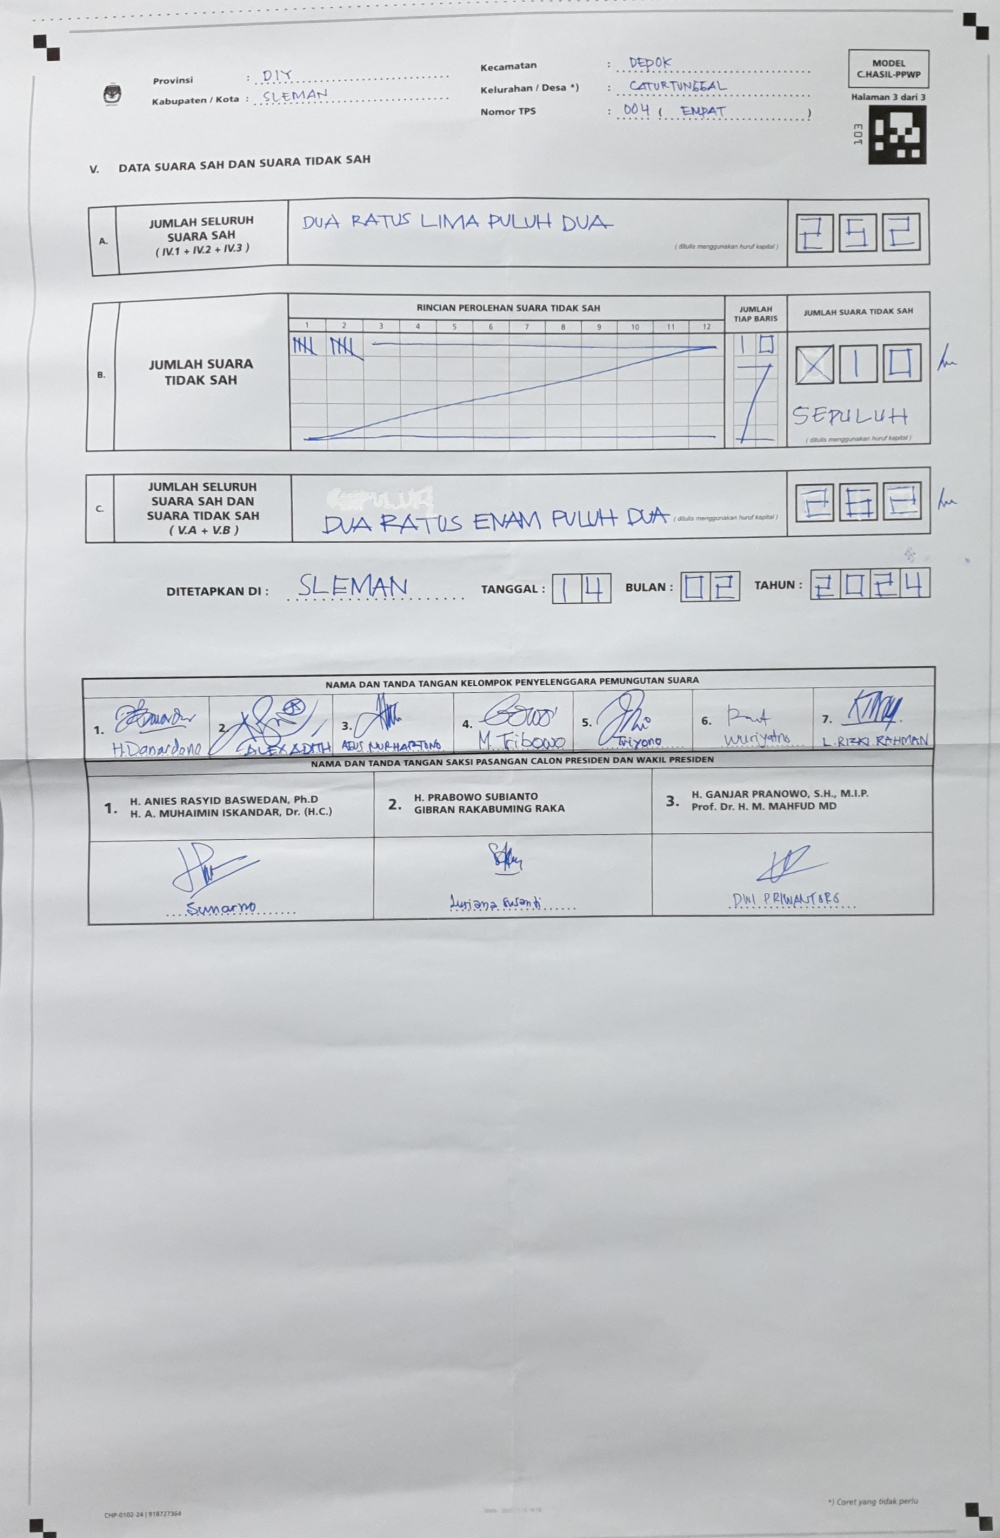 Provinsi : DIY
Kabupaten / Kota : SLEMAN
Kecamatan : DEPOK
Kelurahan / Desa *) : CATURTUNGGAL
Nomor TPS : 004 ( EMPAT )
MODEL
C.HASIL-PPWP
Halaman 3 dari 3
103
V. DATA SUARA SAH DAN SUARA TIDAK SAH
A. JUMLAH SELURUH
SUARA SAH
( IV.1 + IV.2 + IV.3 )
DUA RATUS LIMA PULUH DUA
( ditulis menggunakan huruf kapital )
2 5 2
B. JUMLAH SUARA
TIDAK SAH
RINCIAN PEROLEHAN SUARA TIDAK SAH
1 2 3 4 5 6 7 8 9 10 11 12
JUMLAH
TIAP BARIS
10
JUMLAH SUARA TIDAK SAH
X 1 0
SEPULUH
( ditulis menggunakan huruf kapital )
C. JUMLAH SELURUH
SUARA SAH DAN
SUARA TIDAK SAH
( V.A + V.B )
DUA RATUS ENAM PULUH DUA
( ditulis menggunakan huruf kapital )
2 6 2
DITETAPKAN DI : SLEMAN TANGGAL : 14 BULAN : 02 TAHUN : 2024
NAMA DAN TANDA TANGAN KELOMPOK PENYELENGGARA PEMUNGUTAN SUARA
1. H.Danardono
2. ALEX ADITH
3. AGUS NURHARTONO
4. M. Tribowo
5. Triyono
6. Wuriyatno
7. L. RIZKI RAHMAN
NAMA DAN TANDA TANGAN SAKSI PASANGAN CALON PRESIDEN DAN WAKIL PRESIDEN
1. H. ANIES RASYID BASWEDAN, Ph.D
H. A. MUHAIMIN ISKANDAR, Dr. (H.C.)
2. H. PRABOWO SUBIANTO
GIBRAN RAKABUMING RAKA
3. H. GANJAR PRANOWO, S.H., M.I.P.
Prof. Dr. H. M. MAHFUD MD
Sunarno
DWI PRIWANTORO
*) Coret yang tidak perlu
CHP-0102-24 | 918727364